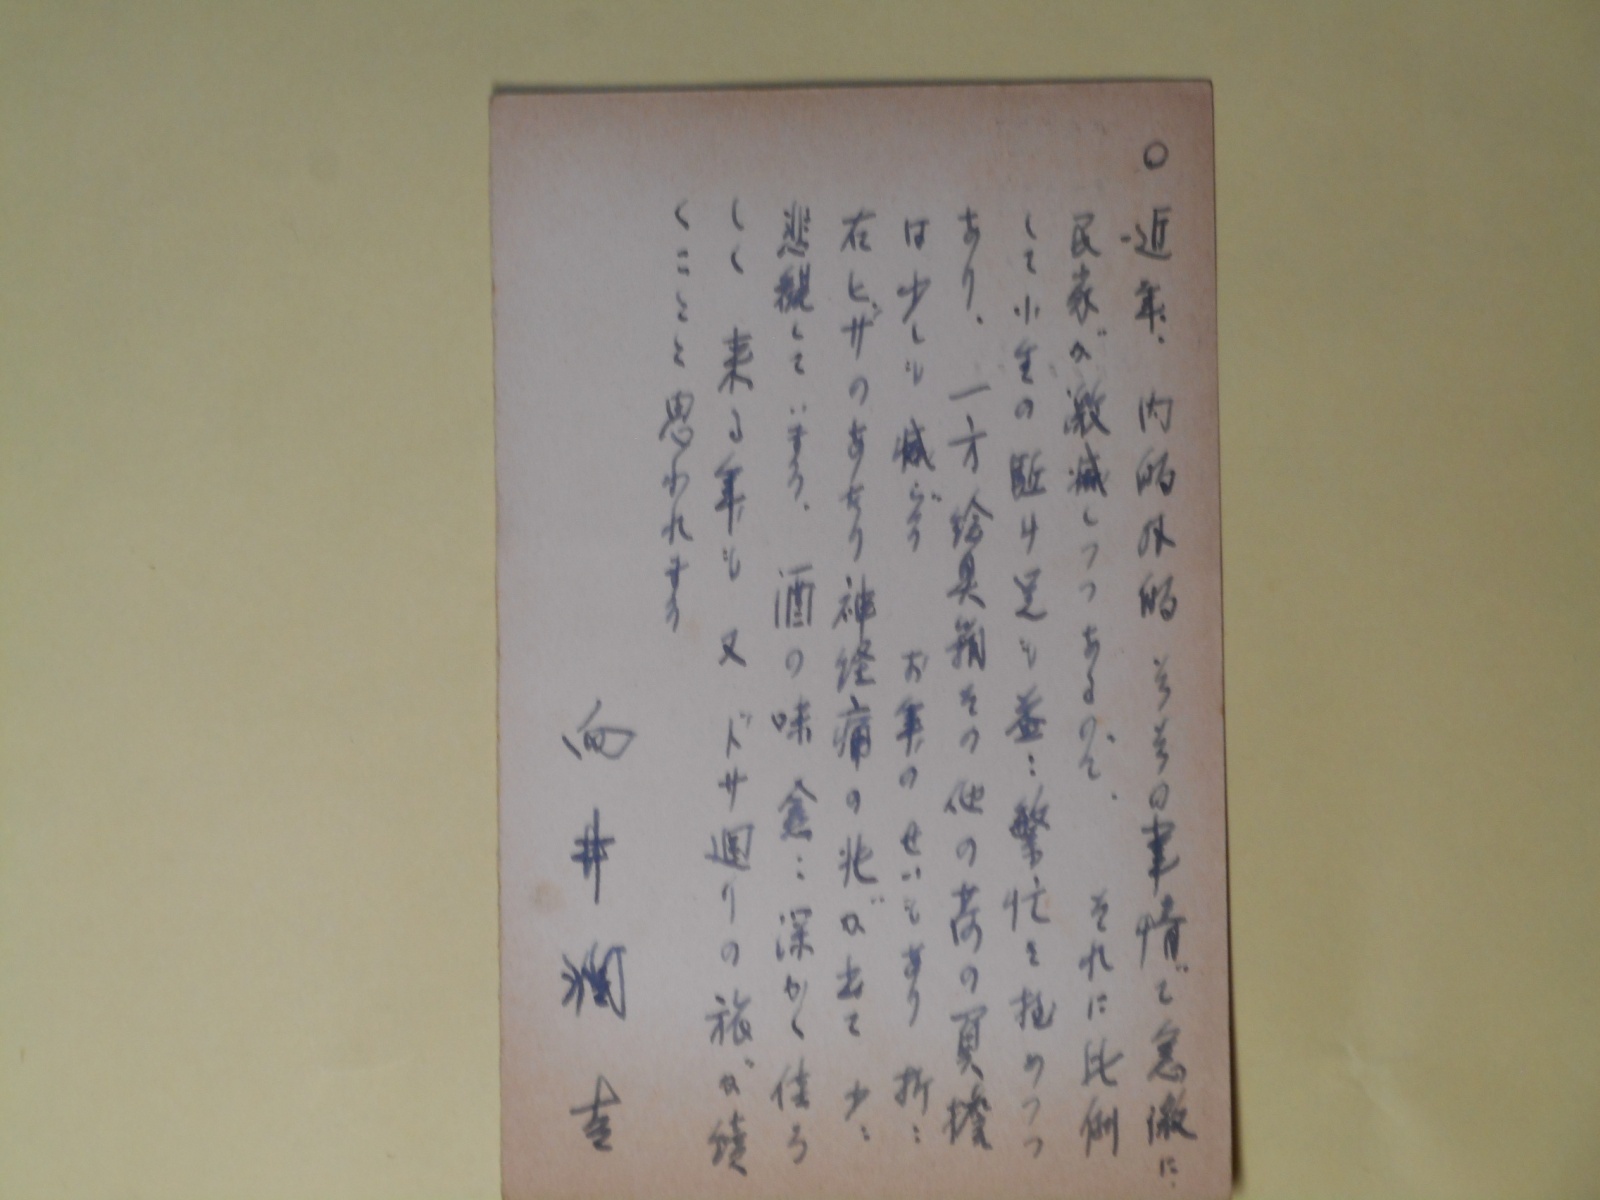 ○近年、内的外的そ々その事情で急激に
民家が激減しつつあるので、それに比例
して小生の駈け足も益々繁忙を極めつつ
あり、一方絵具箱その他の荷の負擔
は少しも減らず お年のせいもあり 折々
右ヒザのあたり神経痛の兆が出て 少々
悲観しています、酒の味愈々深かく佳ろ
しく 来る年も 又 ドサ廻りの旅が続
くことと思われます
向井潤吉